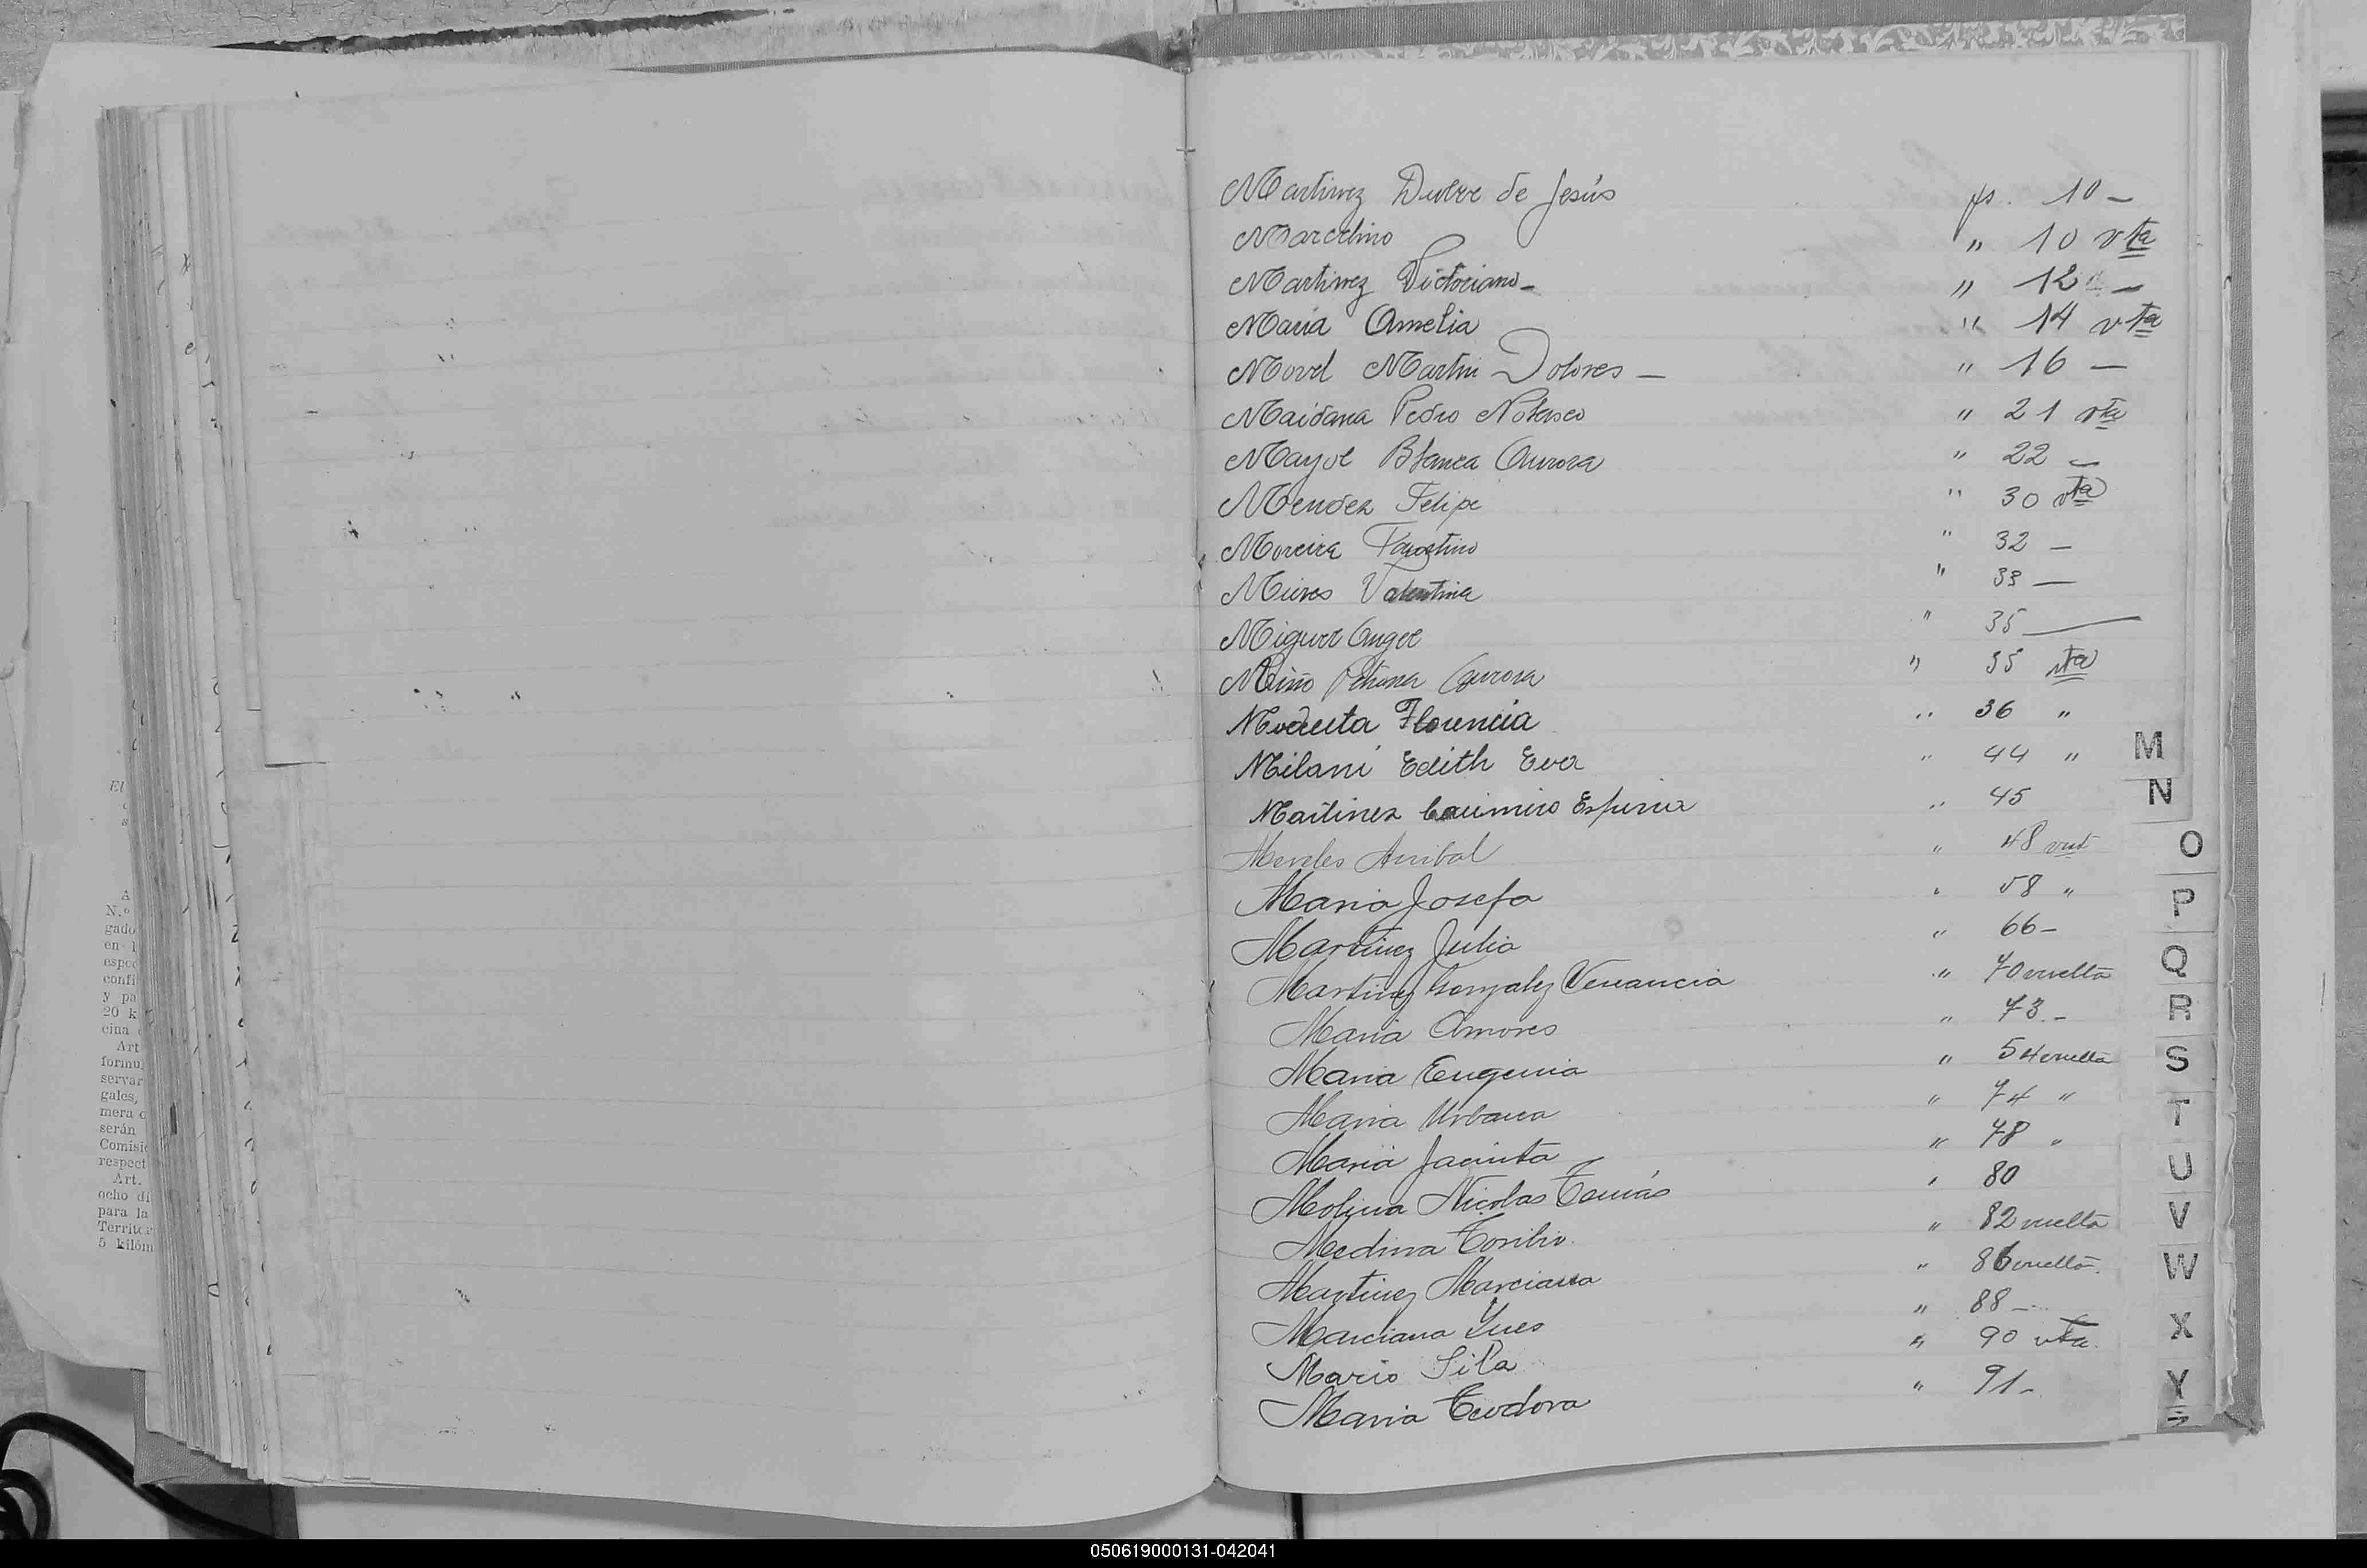 Martinez Dulce de Jesús fs. 10 —
Marcelino " 10 vta
Martinez Victoriano — " 12 —
Maria Amelia " 14 vta
Morel Martin Dolores — " 16 —
Maidana Pedro Nolasco " 21 vta
Mayol Blanca Aurora " 22 —
Mendez Felipe " 30 vta
Moreira Faustino " 32 —
Mieres Valentina " 33 —
Miguel Angel " 35 —
Miño Petrona Aurora " 35 vta
Modesta Florencia " 36 "
Milani Edith Eva " 44 "
Martinez Casimiro " 45
Mereles Anibal " 48 vut
Maria Josefa " 58 "
Martinez Julia " 66 —
Martinez Gonzalez Venancia " 70 vuelta
Maria Amores " 73 —
Maria Eugenia " 54 vuelta
Maria Urbana " 74 "
Maria Jacinta " 78 "
Molina Nicolas Tomás " 80
Medina Toribio " 82 vuelta
Martinez Marciana " 86 vuelta
Marciana Ines " 88 —
Mario Sila " 90 vta.
Maria Teodora " 91 —
M
N
O
P
Q
R
S
T
U
V
W
X
Y
El
A
N.o
gado
en
espec
confi
y pa
20 k
cina
Art
formu
servar
gales,
mera
serán
Comisi
respect
Art.
ocho di
para la
Territor
5 kilóm
050619000131-042041